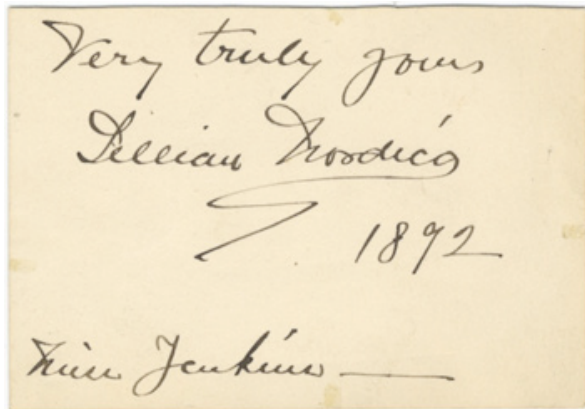 Very truly yours
Lillian Nordica
1892
Miss Jenkins